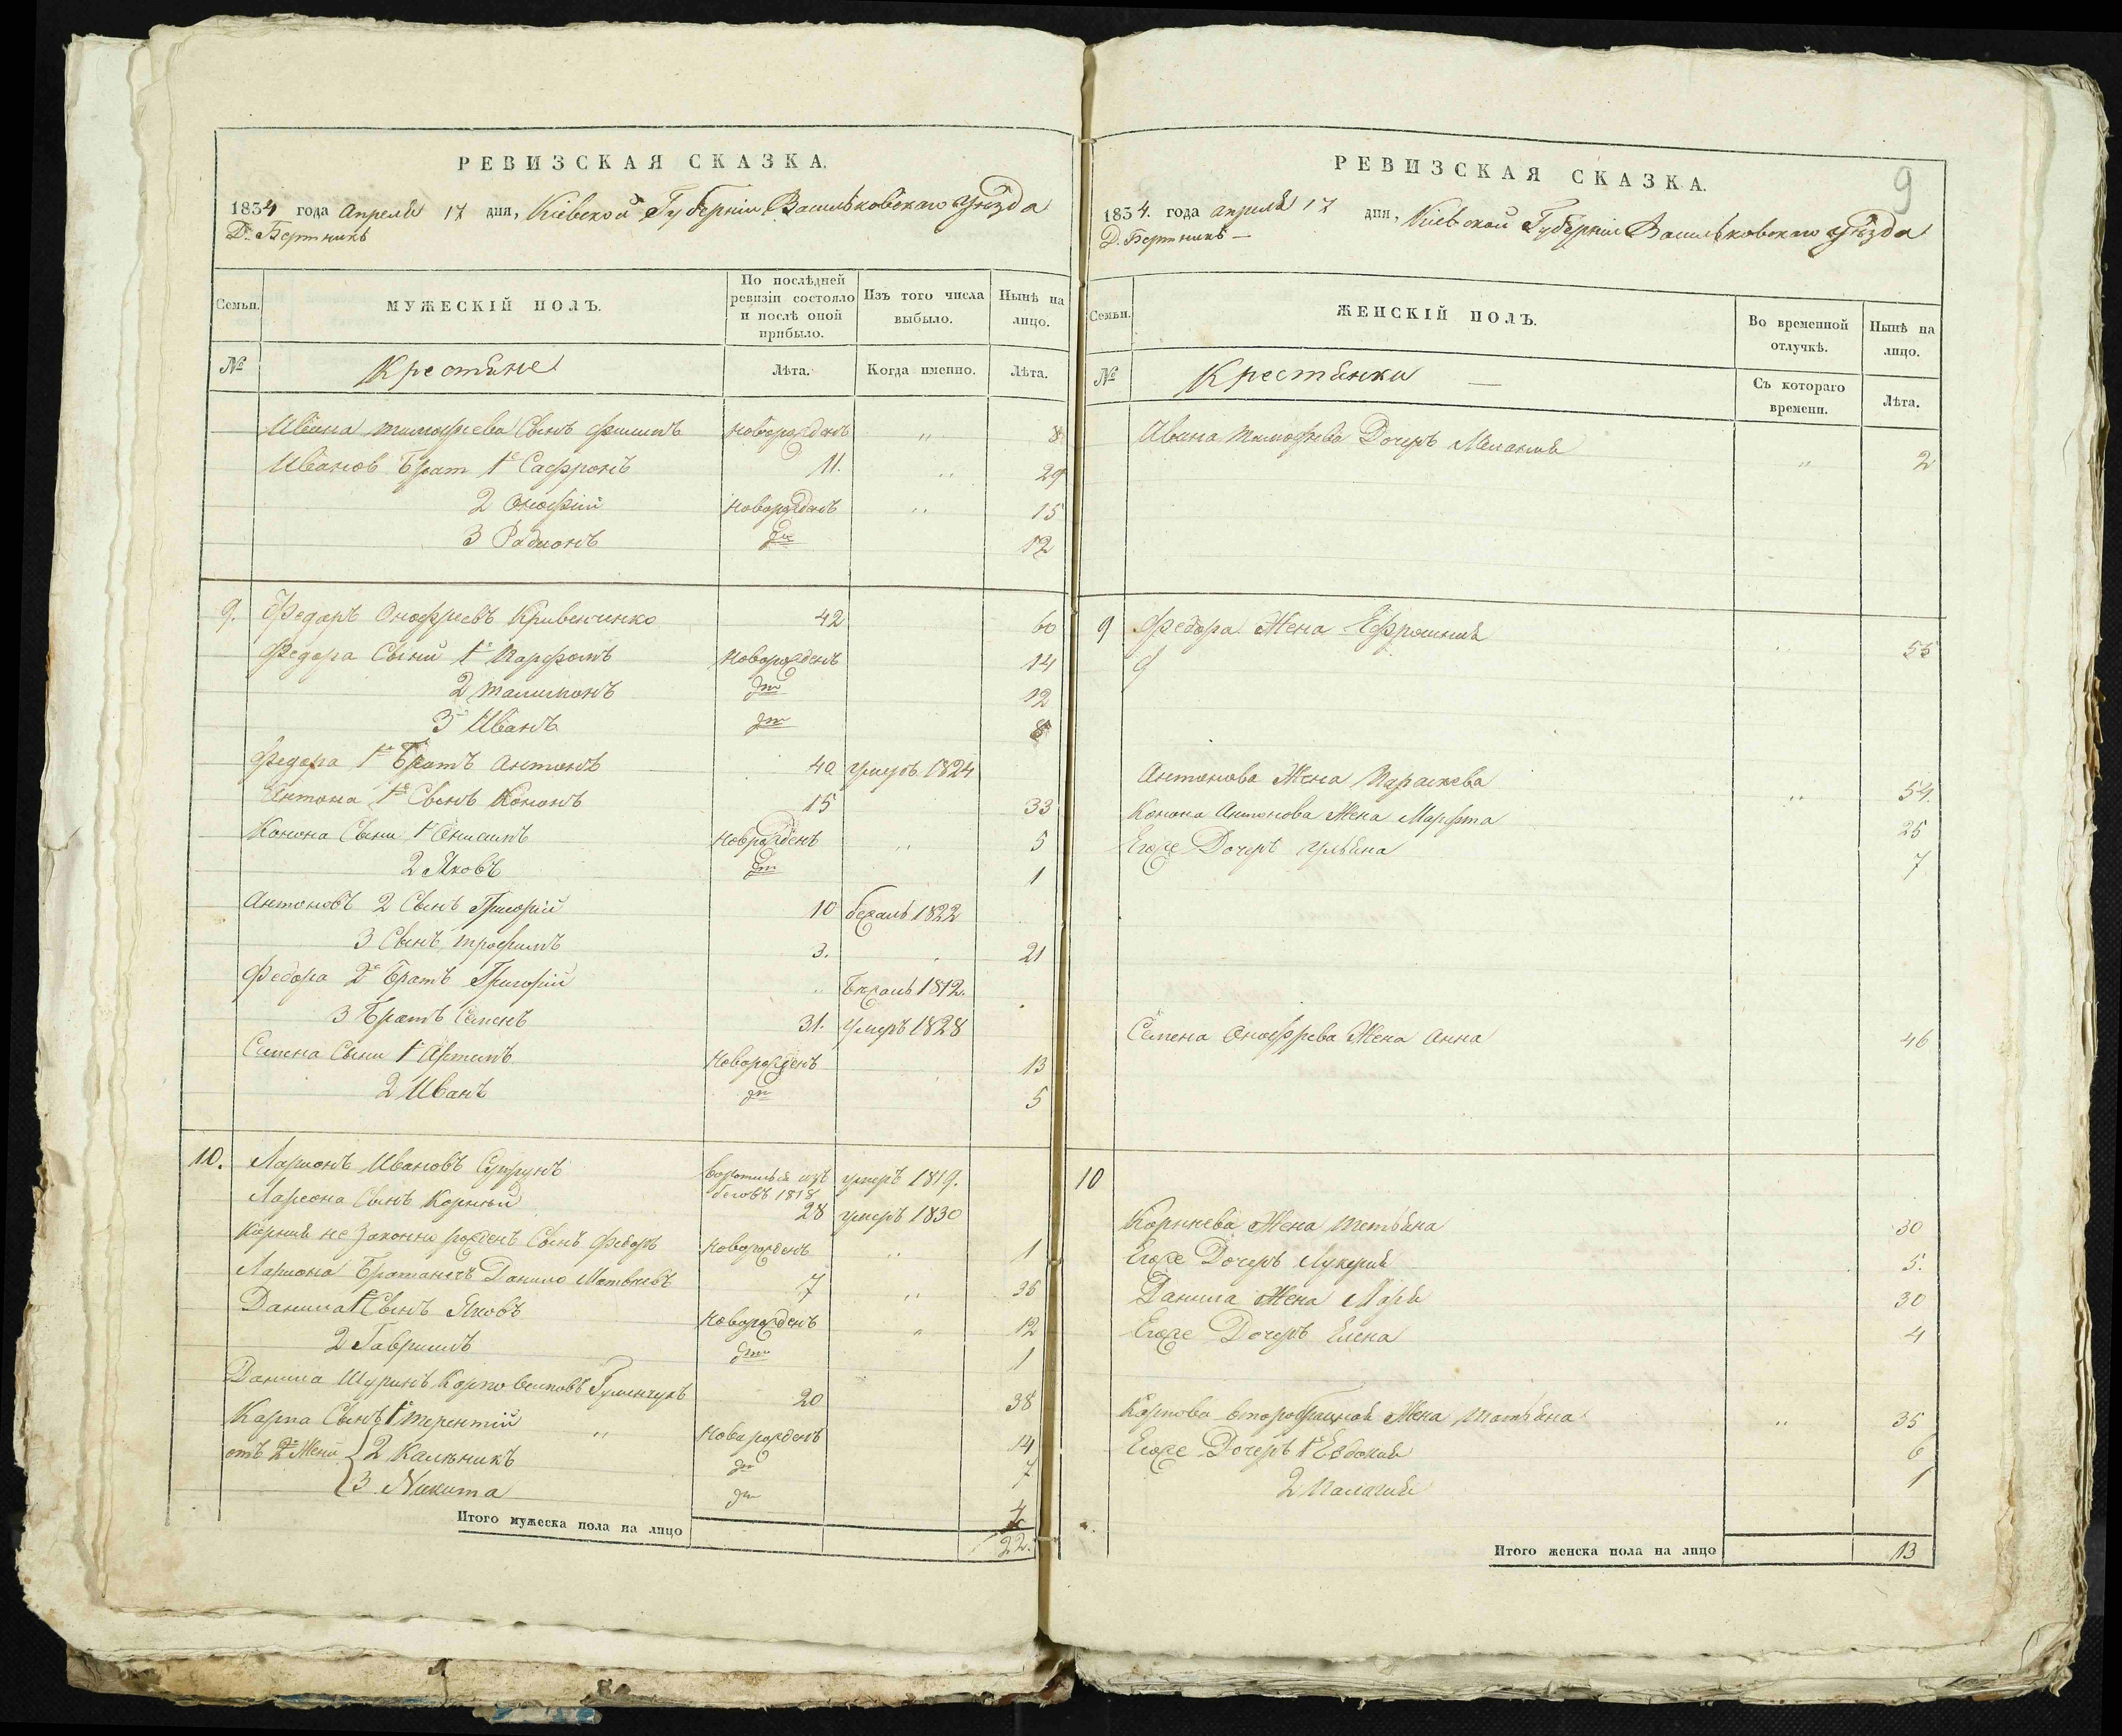 РЕВИЗСКАЯ СКАЗКА.
1834 года Апреля 17 дня, Кіевской Губерніи Васильковскаго уѣзда
Семьи.
МУЖЕСКІЙ ПОЛЪ.
По послѣдней ревизіи состояло и послѣ оной прибыло.
Изъ того числа выбыло.
Нынѣ на лицо.
№
Крестяне
Лѣта.
Когда именно.
Лѣта.
Ивана Тимофѣева Сынъ Филипъ новорожденъ " 8
Иванов Брат 1й Сафронъ 11. " 29
2 Онофрій новорожденъ " 15
3 Радионъ дто 12
9. Федоръ Онофріевъ Кривенченко 42 60
Федора Сыни 1й Парфомъ Новорожденъ 14
2 Талимонъ дто 12
3й Иванъ дто 8
Федора 1й Братъ Антонъ 40 умеръ 1824
Антона 1й Сынъ Кононъ 15 33
Конона Сыни 1 Онисимъ новрожденъ " 5
2 Яковъ дто 1
Антоновъ 2 Сынъ Григорій 10 бежалъ 1822
3 Сынъ Трофимъ 3. 21
Федора 2й Братъ Григорій " Бежалъ 1812.
3 Братъ Семенъ 31. Умеръ 1828
Семена Сыни 1 Артемъ Новорожденъ 13
2 Иванъ дто 5
10. Ларионъ Ивановъ Супрунъ изъ беговъ 1818 умеръ 1819.
Лариона Сынъ Корнѣй 28 умеръ 1830
Корнія не законно рожденъ Сынъ Федоръ Новорожденъ " 1
Лариона Братанечъ Данило Матвѣевъ 7 "
Данила 1 Сынъ Яковъ Новорожденъ " 12
2 Гаврилъ дто 1
Данила Шуринъ Карпо 20 38
Карпа Сынъ 1й Терентій " Новорожденъ 14
отъ 2й Жени 2 Калѣникъ дто 7
3 Никита дто 4
Итого мужеска пола на лицо 22.
РЕВИЗСКАЯ СКАЗКА.
9
1834. года апреля 17 дня, Кіевской Губерніи Васильковскаго уѣзда
Семьи.
ЖЕНСКІЙ ПОЛЪ.
Во временной отлучкѣ.
Нынѣ на лицо.
№
Крестянки —
Съ котораго времени.
Лѣта.
Ивана Тимофѣева Дочеръ Меланія " 2
9 Федора Жена Ефросинія " 55
Антонова Жена Параскева " 54.
Конона Антонова Жена Марфта 25
Егоже Дочеръ Ульяна 7
Семена Онофрѣва Жена Анна 46
10
Корнѣева Жена Тетьяна 30
Егоже Дочеръ Лукерія 5.
Данила Жена Марія 30
Егоже Дочеръ Елена 4
Карпова Жена Татьяна " 35
Егоже Дочеръ 1й Евдокия 6
2 Палагия 1
Итого женска пола на лицо 13